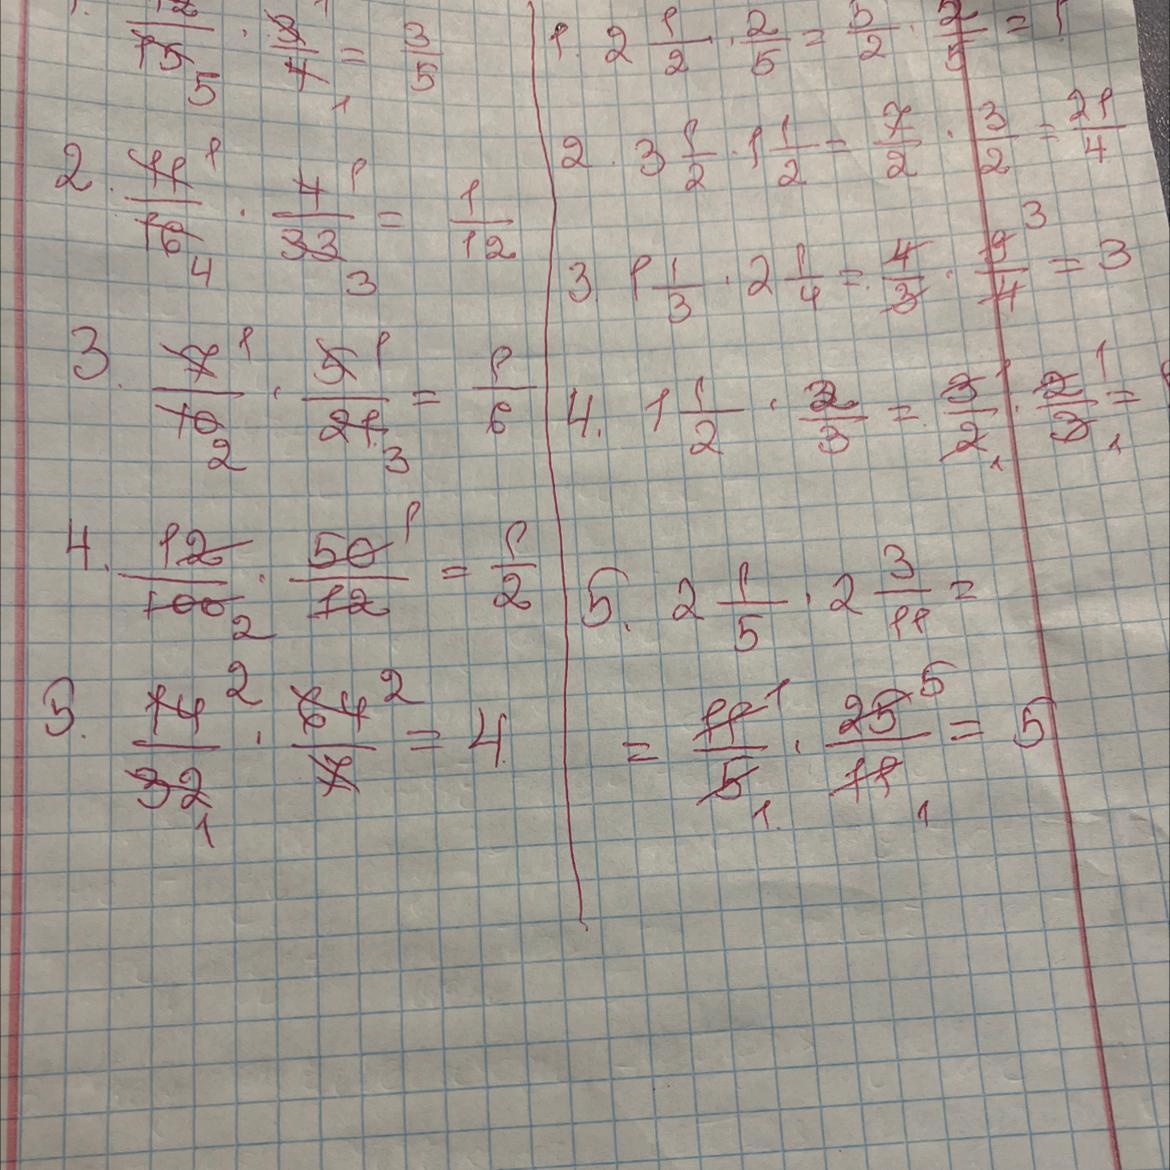 12/15 5 · 3/4 1 1 = 3/5
2. 11/16 1 4 · 4/33 1 3 = 1/12
3. 7/10 1 2 · 5/21 1 3 = 1/6
4. 12/100 2 · 50/12 1 = 1/2
5. 14/32 2 1 · 64/7 2 = 4
1. 2 1/2 · 2/5 = 5/2 · 2/5 = 1
2. 3 1/2 · 1 1/2 = 7/2 · 3/2 = 21/4
3 1 1/3 · 2 1/4 = 4/3 · 9/4 3 = 3
4. 1 1/2 · 2/3 = 3/2 1 1 · 2/3 1 1 =
5. 2 1/5 · 2 3/11 =
= 11/5 1 1. · 25/11 5 1 = 5